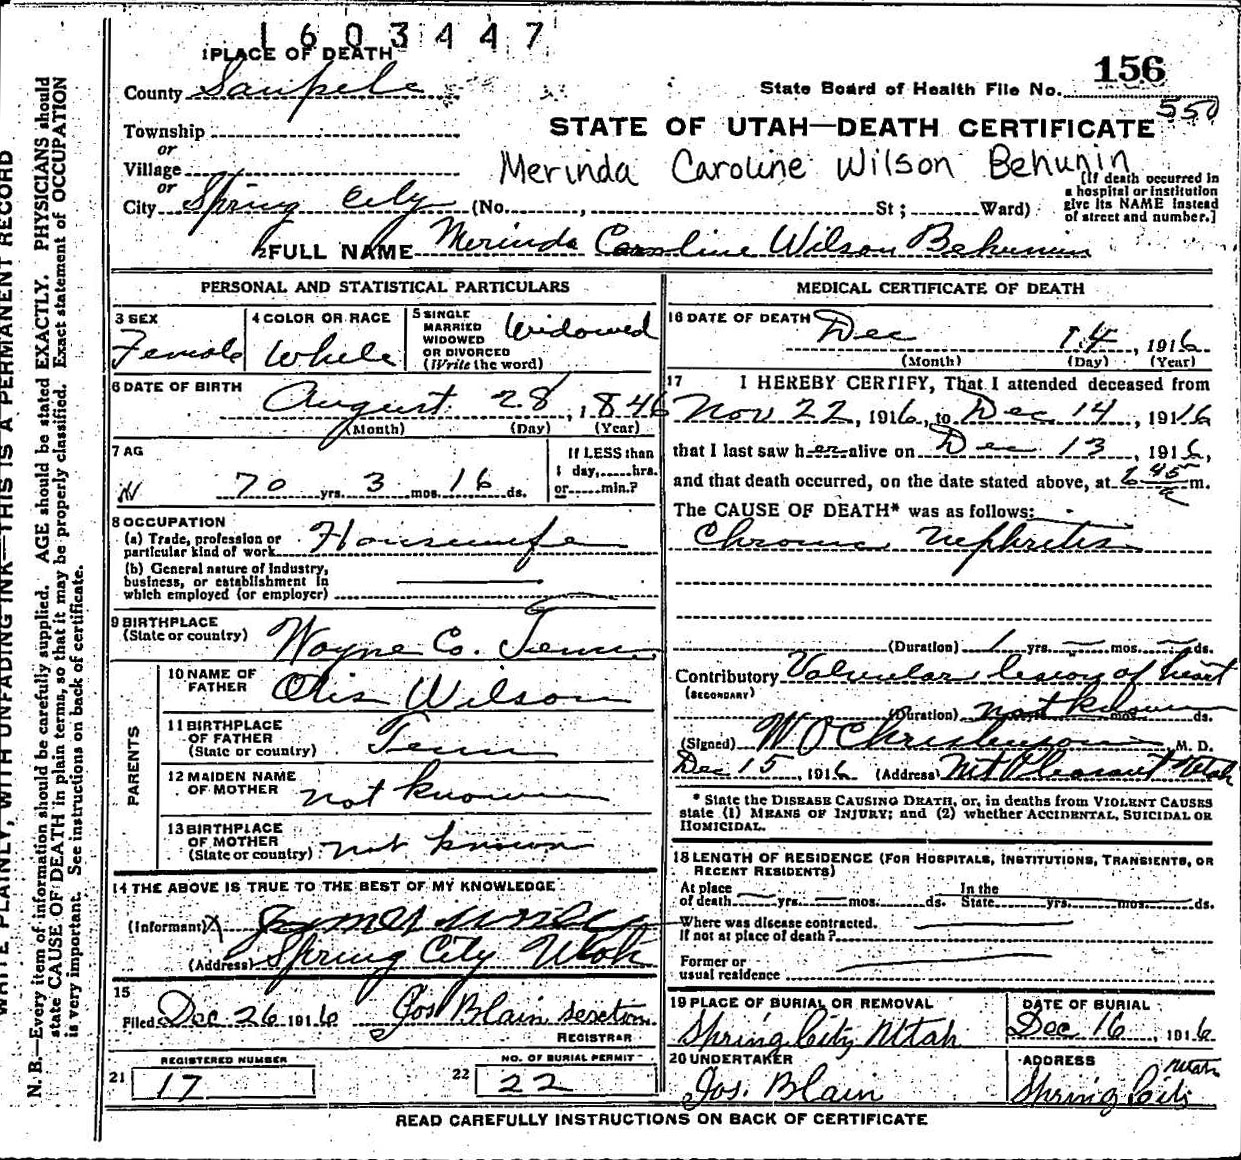 1603447
1 PLACE OF DEATH
156
County Sanpete
State Board of Health File No.
550
Township
or
STATE OF UTAH—DEATH CERTIFICATE
Village
or
Merinda Caroline Wilson Behunin
City Spring City (No. , St; Ward)
[If death occurred in
a hospital or institution
give its NAME instead
of street and number.]
2 FULL NAME Merinda Caroline Wilson Behunin
PERSONAL AND STATISTICAL PARTICULARS
3 SEX
Female
4 COLOR OR RACE
White
5 SINGLE
MARRIED
WIDOWED
OR DIVORCED
(Write the word)
Widowed
6 DATE OF BIRTH
August 28, 1846
(Month) (Day) (Year)
7 AG
70 yrs. 3 mos. 16 ds.
If LESS than
1 day, hrs.
or min.?
8 OCCUPATION
(a) Trade, profession or
particular kind of work Housewife
(b) General nature of Industry,
business, or establishment in
which employed (or employer)
9 BIRTHPLACE
(State or country) Wayne Co. Tenn.
PARENTS
10 NAME OF
FATHER Otis Wilson
11 BIRTHPLACE
OF FATHER
(State or country) Tenn
12 MAIDEN NAME
OF MOTHER not known
13 BIRTHPLACE
OF MOTHER
(State or country) not known
14 THE ABOVE IS TRUE TO THE BEST OF MY KNOWLEDGE
(Informant) X
(Address) Spring City Utah
15
Filed Dec 26 1916 Jos Blain sexton
REGISTRAR
REGISTERED NUMBER
21 17
NO. OF BURIAL PERMIT
22 22
MEDICAL CERTIFICATE OF DEATH
16 DATE OF DEATH Dec 14, 1916
(Month) (Day) (Year)
17 I HEREBY CERTIFY, That I attended deceased from
Nov 22, 1916, to Dec 14, 1916
that I last saw her alive on Dec 13, 1916,
and that death occurred, on the date stated above, at 6 45 a m.
The CAUSE OF DEATH* was as follows:
Chronic Nephritis
(Duration) 1 yrs. — mos. — ds.
Contributory Valvular lesion of heart
(SECONDARY)
(Duration) not known mos. ds.
(Signed) W P Christenson M. D.
Dec 15, 1916 (Address) Mt Pleasant Utah
* State the DISEASE CAUSING DEATH, or, in deaths from VIOLENT CAUSES
state (1) MEANS OF INJURY; and (2) whether ACCIDENTAL, SUICIDAL OR
HOMICIDAL.
18 LENGTH OF RESIDENCE (FOR HOSPITALS, INSTITUTIONS, TRANSIENTS, OR
RECENT RESIDENTS)
At place
of death — yrs. — mos. ds.
In the
State yrs. mos. ds.
Where was disease contracted.
If not at place of death?
Former or
usual residence
19 PLACE OF BURIAL OR REMOVAL
Spring City Utah
DATE OF BURIAL
Dec 16, 1916
20 UNDERTAKER
Jos. Blain
ADDRESS
Spring City Utah
READ CAREFULLY INSTRUCTIONS ON BACK OF CERTIFICATE
WRITE PLAINLY, WITH UNFADING INK—THIS IS A PERMANENT RECORD
N. B.—Every item of information should be carefully supplied. AGE should be stated EXACTLY. PHYSICIANS should
state CAUSE OF DEATH in plain terms, so that it may be properly classified. Exact statement of OCCUPATION
is very important. See instructions on back of certificate.